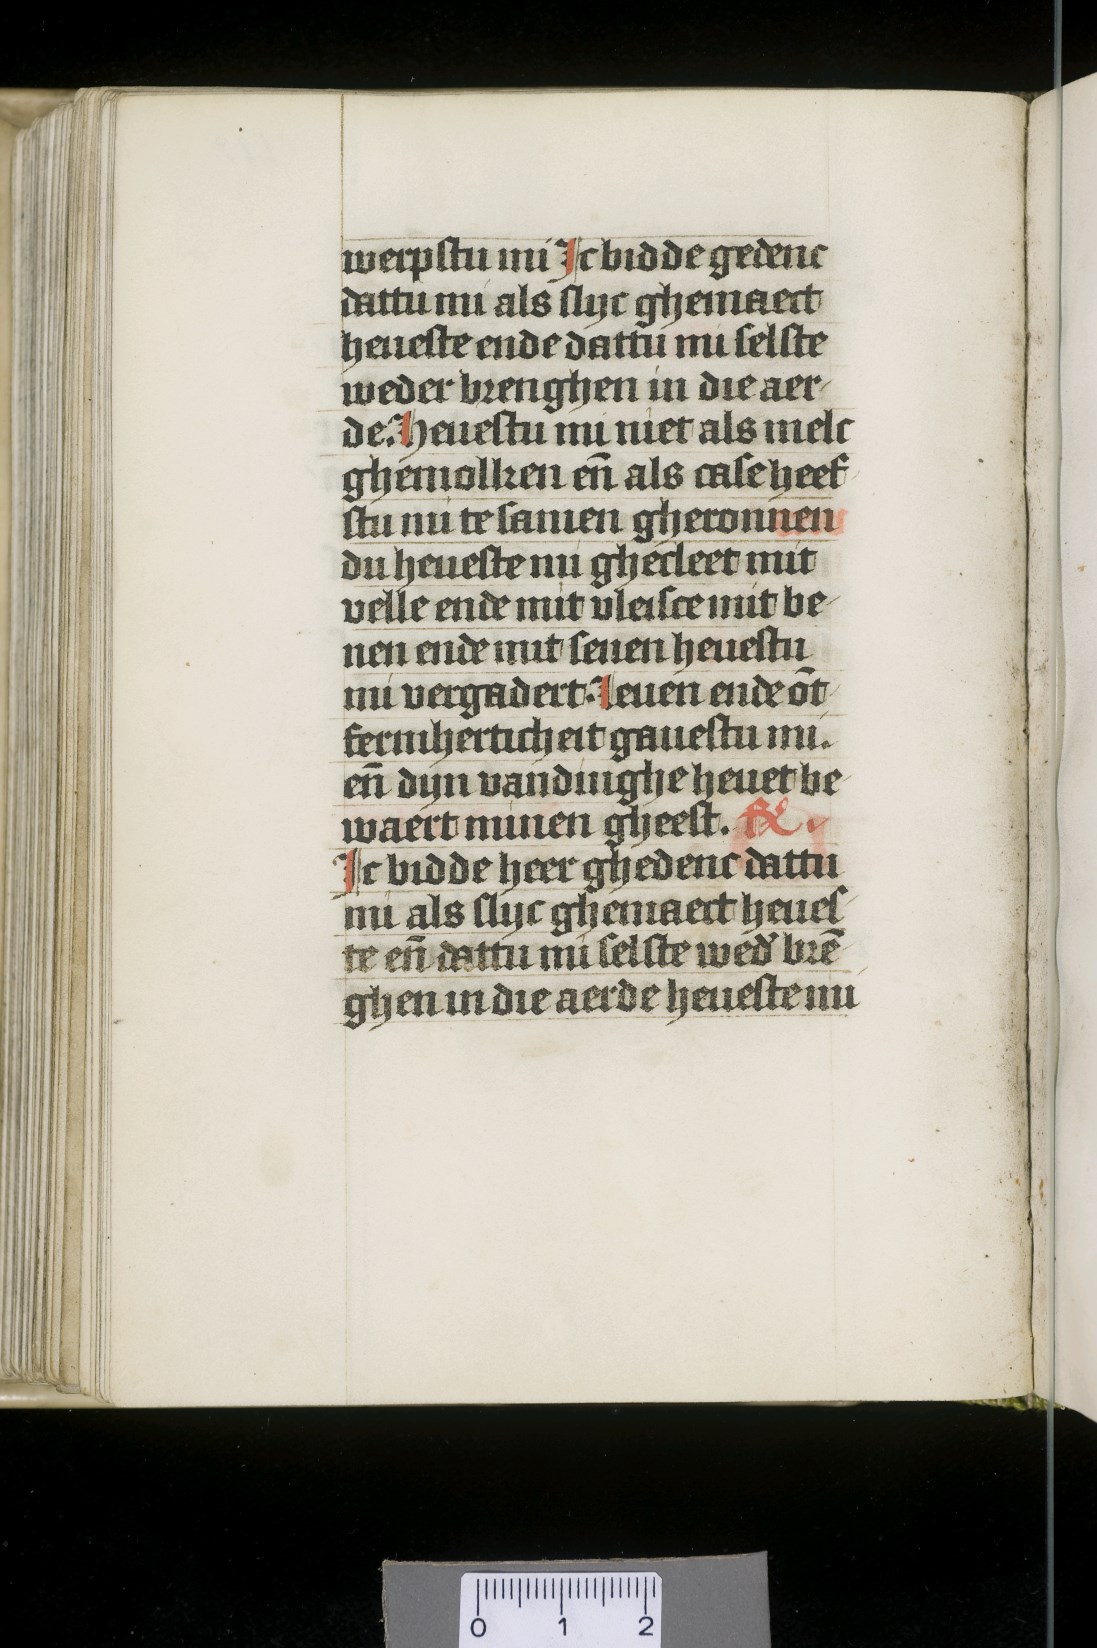 werpstu mi Ic bidde gedenc
dattu mi als slijc ghemaect
heueste ende dattu mi selste
weder brenghen in die aer
de. Heuestu mi niet als melc
ghemolken en̄ als case heef
stu mi te samen gheronnen
du heueste mi ghecleet mit
velle ende mit vleisce mit be
nen ende mit senen heuestu
mi vergadert. Leuen ende ōt
fermherticheit gauestu mi.
en̄ dijn vandinghe heuet be
waert minen gheest. ℟.
Ic bidde heer ghedenc dattu
mi als slijc ghemaect heues
te en̄ dattu mi selste wed' brē
ghen in die aerde heueste mi
0 1 2